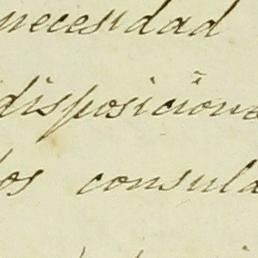 necesidad
disposicione
los consula